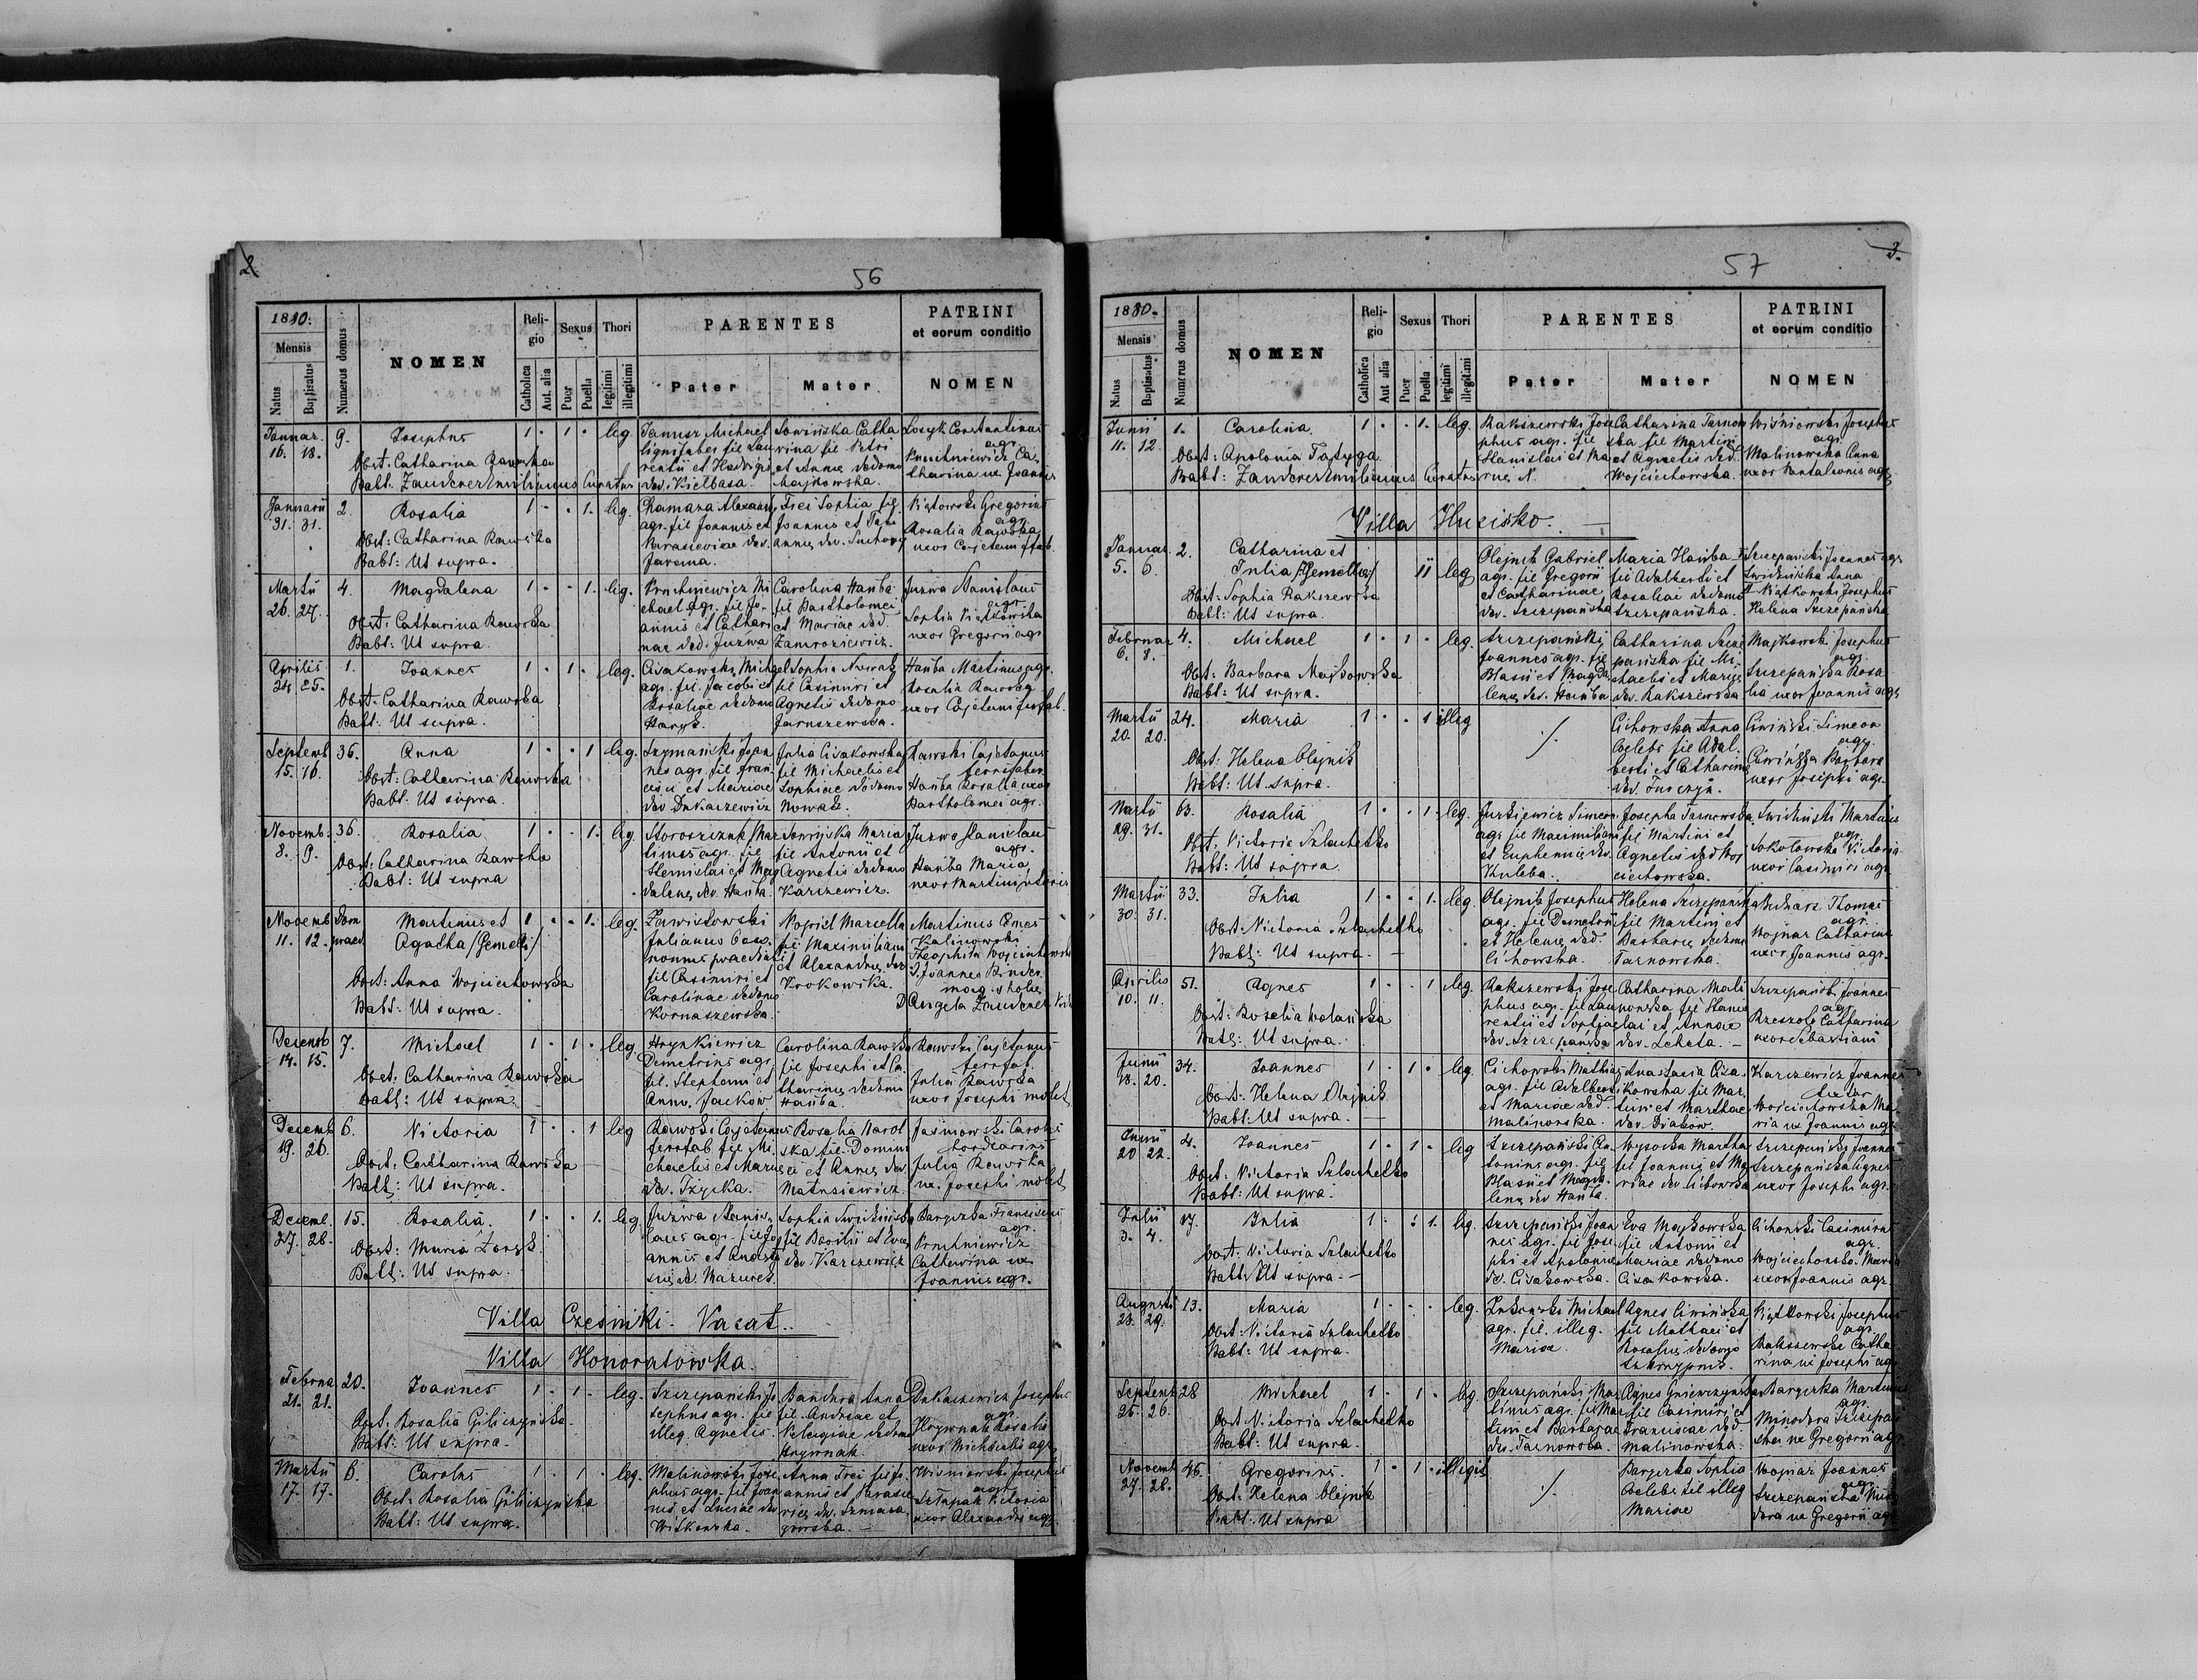 2
56
1880.
Mensis
Natus
Baptisatus
Numerus domus
NOMEN
Religio
Catholica
Aut. alia
Sexus
Puer
Puella
Thori
legitimi
illegitimi
PARENTES
Pater
Mater
PATRINI
et eorum conditio
NOMEN
Januar. 16. 18. 9. Josephus 1 1 leg.
Obst: Catharina Rawska
Babt. Zauderer Emilianus Curatus
Janusz Michael
lignifaber fil Lau
rentii et Hedvigis
de d. Kiełbasa
Sowińska Catha
rina fil Petri
et Annæ de domo
Majkowska.
Constantinus
agr.
Pruchniewicz Ca
tharina ux Joannis
Januarii 31. 31. 2. Rosalia 1 1. leg.
Obst: Catharina Rawska
Babt: Ut supra.
agr. fil Joannis et
Parasceviae de d.
Frei Sophia fil
Joannis et
annæ de d.
Gregorius
agr.
Rosalia Rawska
uxor Cajetani
Martii 26. 27. 4. Magdalena 1 1. leg.
Obst: Catharina Rawska
Babt: Ut supra.
Pruchniewicz Mi
chael agr. fil Jo-
annis et Cathari
nae de d. Juźwa
Carolina Hańba
fil Bartholomei
et Mariae de d.
Zamroziewicz.
Juzwa Stanislaus
agr.
Sophia
uxor Gregorii agr.
Aprilis 24. 25. 1. Joannes 1 1. leg.
Obst: Catharina Rawska
Babt: Ut supra.
Cisakowski Michael
agr. fil Jacobi et
Rosaliae de domo
Sophia Nowak
fil Casimiri et
Agnetis de domo
Jaruszewska.
Hańba Martinus agr.
Rosalia Rawska
uxor Cajetani
Septemb. 15. 16. 36. Anna 1 1 leg.
Obst: Catharina Rawska
Babt: Ut supra.
Szymański Joan
nes agr. fil Fran
cisci et Mariae
de d. Dukaczewicz
Julia Cisakowska
fil Michaelis et
Sophiae de domo
Nowak.
Rawski Cajetanus
ferrifaber
Hańba Rosalia uxor
Bartholomei agr.
Novemb. 8. 9. 36. Rosalia 1 1. leg.
Obst: Catharina Rawska
Babt: Ut supra
Mar
tinus agr. fil
Stanislai et Mag
dalenæ de d. Hańba
Maria
fil Antonii et
Agnetis de domo
Karczewicz.
Juzwa Stanislaus
agr.
Hańba Maria
uxor Martini
Novemb. 11. 12. Dom praed. Martinus et 1 1. leg.
Agatha (Gemelli)
Obst: Anna Wojciechowska
Babt: Ut supra.
Zawistowski
Julianus
fil Casimiri et
Carolinae de domo
Kornaszewska.
Popiel Marcella
fil Maximiliani
et Alexandræ de d.
Krokowska.
Martinus
Kalinowski
Theophila Wojciechowska
Joannes Binder
mag. scholae
Angela Zauderer
Decemb 14. 15. 7. Michael 1 1. leg
Obst: Catharina Rawska
Babt: Ut supra
Hrynkiewicz
Demetrius agr.
fil. Stephani et
Annæ Jackow
Carolina Rawska
fil Josephi et Ca
tharinæ de domo
Hańba.
Rawski Cajetanus
ferrifab.
Julia Rawska
uxor Josephi molit.
Decemb 19. 26. 6. Victoria 1 1 leg
Obst: Catharina Rawska
Babt: Ut supra.
Rawski Cajetanus
ferrifab fil Mi
chaelis et Mariæ
Rosalia Karol
ska fil. Domini
ci et Annæ de d.
Matusiewicz
Carolus
Julia Rawska
ux. Josephi molit
Decemb. 27. 28. 15. Rosalia. 1 1. leg
Obst: Maria
Babt: Ut supra.
Juzwa Stanis
laus agr. fil Jo
annis et
de d. Mazurek
Sophia Świdzińska
fil Basilii et Evæ
de d. Karczewicz
Bargerka Franciscus
agr.
Pruchniewicz
Catharina ux
Joannis agr.
Villa Cześniki. Vacat.
Villa Honoratówka.
Februa. 21. 21. 20. Joannes 1 1 leg.
Obst: Rosalia Giliczyńska.
Babt: Ut supra.
Szczepański Jo
sephus agr. fil
illeg. Agnetis.
Bandura Anna
fil. Andreae et
Pelagiae de domo
Hrywnak.
Dukaczewicz Josephus
agr.
Hrywnak Rosalia
uxor Michaelis agr.
Martii 17. 17. 6. Carolus 1 1 leg.
Obst: Rosalia Giliczyńska
Babt: Ut supra.
Malinowski Jose
phus agr. fil Joan
nis et Luciae de d
Witkowska.
Anna Frei fil Jo
annis et Parasce
viæ de d. Szmara
gowska.
Wisniowski Josephus
agr.
Victoria
uxor Alexandri agr.
3.
57
1880.
Mensis
Natus
Baptisatus
Numerus domus
NOMEN
Religio
Catholica
Aut alia
Sexus
Puer
Puella
Thori
legitimi
illegitimi
PARENTES
Pater
Mater
PATRINI
et eorum conditio
NOMEN
Junii 11. 12. 1. Carolina 1 1. leg.
Obst: Apolonia Fatyga
Babt: Zauderer Emilianus Curatus
Rakszewski Jose
phus agr. fil
Stanislai et Ma
riæ N.
Catharina Tarnow
ska fil Martini
et Agnetis de d.
Wojciechowska.
Wiśniowski Josephus
agr.
Malinowska Anna
uxor Pantaleonis agr.
Villa Hucisko.
Januar. 5. 6. 2. Catharina et II leg
Julia (Gemellæ)
Obst: Sophia Rakszewska
Babt: Ut supra.
Olejnik Gabriel
agr. fil Gregorii
et Catharinae
de d. Szczepańska
Maria Hańba
fil Adalberti et
Rosaliae de domo
Szczepańska.
I Szczepański Joannes agr
Świdzińska Anna
II Kiątkowski Josephus
Helena Szczepańska
Februar 6. 8. 4. Michael 1 1 leg.
Obst: Barbara Majkowska
Babt: Ut supra.
Szczepański
Joannes agr. fil
Blasii et Magda
lenæ de d. Hańba
Catharina Szcze
pańska fil Mi
chaelis et Mariæ
de d. Rakszewska
Majkowski Josephus
agr.
Szczepańska Rosa
lia uxor Joannis agr
Martii 20. 20. 24. Maria 1 1 illeg
Obst: Helena Olejnik
Babt: Ut supra.
Cichowska Anna
Coelebs fil Adal
berti et Catharinæ
de d. Turczyn.
Ciwiński Simeon
agr.
Ciwińska Barbara
uxor Josephi agr.
Martii 29. 31. 63. Rosalia 1 1. leg.
Obst: Victoria Szlachetko
Babt: Ut supra
Jurkiewicz Simeon
agr fil Maximiliani
et Euphemiæ de d.
Kuleba.
Josepha Tarnowska
fil Martini et
Agnetis de d Woj
ciechowska.
Świdziński Martinus
agr.
Sokołowska Victoria
uxor Casimiri agr.
Martii 30. 31. 33. Julia 1 1. leg.
Obst: Victoria Szlachetko
Babt: Ut supra.
Olejnik Josephus
agr. fil Demetrii
et Helenæ de d.
Cichowska.
Helena Szczepańska
fil Martini et
Barbaræ de domo
Tarnowska.
Thomas
agr.
Wojnar Catharina
uxor Joannis agr.
Aprilis 10. 11. 51. Agnes 1 1 leg.
Obst: Rosalia Wolańska
Babt: Ut supra.
Rakszewski Jose
phus agr. fil Lau
rentii et Sophiae
de d. Szczepańska
Catharina Mali
nowska fil Stanis
lai et Annae
de d. Leketa.
Szczepański Joannes
agr
Rzeszot Catharina
uxor Sebastiani
Junii 18. 20. 34. Joannes 1 1 leg.
Obst: Helena Olejnik
Babt: Ut supra.
Cichowski Mathias
agr. fil Adalberti
et Mariae de d.
Malinowska.
Anastasia Cisa
kowska fil Mar
tini et Marthae
de d. Drabow.
Karczewicz Joannes
Wojciechowska Ma
ria ux Joannis agr
Junii 20 22. 4. Joannes 1 1 leg
Obst: Victoria Szlachetko
Babt: Ut supra.
Szczepański An
tonius agr. fil
Blasii et Magda
lenæ de d Hańba
Wysocka Martha
fil Joannis et Ma
riae de d Cichowska
Szczepański Joannes
Szczepańska Agnes
uxor Josephi agr.
Julii 3. 4. 17. Julia 1 1. leg.
Obst: Victoria Szlachetko
Babt: Ut supra.
Szczepański Joan
nes agr. fil Jose
phi et Apoloniæ
de d. Cisakowska.
Eva Majkowska
fil Antonii et
Mariae de domo
Cisakowska.
Cichowski Casimirus
agr.
Wojciechowska Maria
uxor Joannis agr.
Augusti 28. 29. 13. Maria 1 leg.
Obst: Victoria Szlachetko
Babt: Ut supra.
Michael
agr. fil. illeg.
Mariae
Agnes Ciwińska
fil Mathaei et
Rosaliæ de domo
Kiątkowski Josephus
agr.
Rakszewska Catha
rina ux Josephi agr
Septemb 25. 26. 28 Michael 1 1 leg
Obst: Victoria Szlachetko
Babt: Ut supra.
Szczepański Mar
tinus agr. fil Mar
tini et Barbarae
de d. Tarnowska.
Agnes
fil Casimiri et
Franciscae de d.
Malinowska.
Bargerka Martinus
agr.
Minodora Szczepań
ska ux Gregorii agr
Novemb 27. 28. 46. Gregorius. 1 1 illegit
Obst: Helena Olejnik
Babt: Ut supra
Bargerka Sophia
Coelebs fil illeg
Mariae
Wojnar Joannes
agr.
Szczepańska Mino
dora ux Gregorii agr.